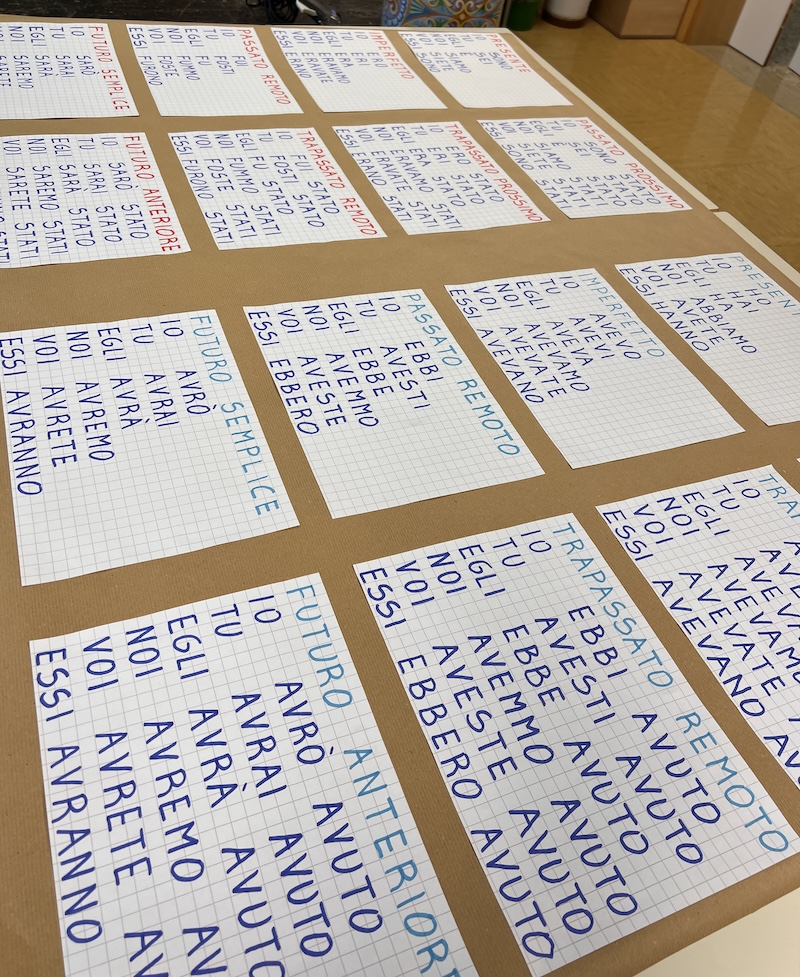 PRESENTE
IO SONO
TU SEI
EGLI È
NOI SIAMO
VOI SIETE
ESSI SONO
IMPERFETTO
IO ERO
TU ERI
EGLI ERA
NOI
VOI ERAVATE
ESSI ERANO
PASSATO REMOTO
IO FUI
TU FOSTI
EGLI FU
NOI FUMMO
VOI FOSTE
ESSI FURONO
FUTURO SEMPLICE
IO SARÒ
TU SARAI
EGLI SARÀ
NOI SAREMO
VOI SARETE
PASSATO PROSSIMO
IO SONO STATO
TU SEI STATO
EGLI È STATO
NOI SIAMO STATI
VOI SIETE STATI
ESSI SONO STATI
TRAPASSATO PROSSIMO
IO ERO STATO
TU ERI STATO
EGLI ERA STATO
NOI STATI
VOI ERAVATE STATI
ESSI ERANO STATI
TRAPASSATO REMOTO
IO FUI STATO
TU FOSTI STATO
EGLI FU STATO
NOI FUMMO STATI
VOI FOSTE STATI
ESSI FURONO STATI
FUTURO ANTERIORE
IO SARÒ STATO
TU SARAI STATO
EGLI SARÀ STATO
NOI SAREMO STATI
VOI SARETE STATI
STATI
PRESENT
IO HO
TU HAI
EGLI HA
NOI ABBIAMO
VOI AVETE
ESSI HANNO
IMPERFETTO
IO AVEVO
TU AVEVI
EGLI AVEVA
NOI AVEVAMO
VOI AVEVATE
ESSI AVEVANO
PASSATO REMOTO
IO EBBI
TU AVESTI
EGLI EBBE
NOI AVEMMO
VOI AVESTE
ESSI EBBERO
FUTURO SEMPLICE
IO AVRÒ
TU AVRAI
EGLI AVRÀ
NOI AVREMO
VOI AVRETE
ESSI AVRANNO
TRA
IO AV
TU AVE
EGLI AVEV
NOI AVEVAMO
VOI AVEVATE AV
ESSI AVEVANO AV
TRAPASSATO REMOTO
IO EBBI AVUTO
TU AVESTI AVUTO
EGLI EBBE AVUTO
NOI AVEMMO AVUTO
VOI AVESTE AVUTO
ESSI EBBERO AVUTO
FUTURO ANTERIOR
IO AVRÒ AVUTO
TU AVRAI AVUTO
EGLI AVRÀ AVUTO
NOI AVREMO AV
VOI AVRETE AV
ESSI AVRANNO